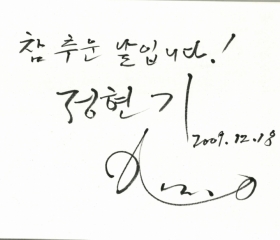 참 추운 날입니다!
정현기
2009.12.18